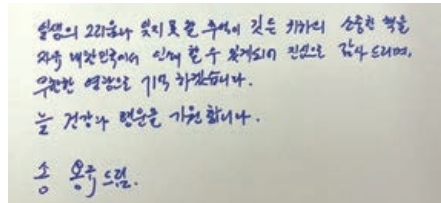 일생의 그리움과 잊지 못할 추억이 깃든 귀하의 소중한 책을
자유 대한민국에서 인쇄 할 수 있게되어 진심으로 감사 드리며,
무한한 영광으로 기억 하겠습니다.
늘 건강과 행운을 기원합니다.
송 용규 드림.